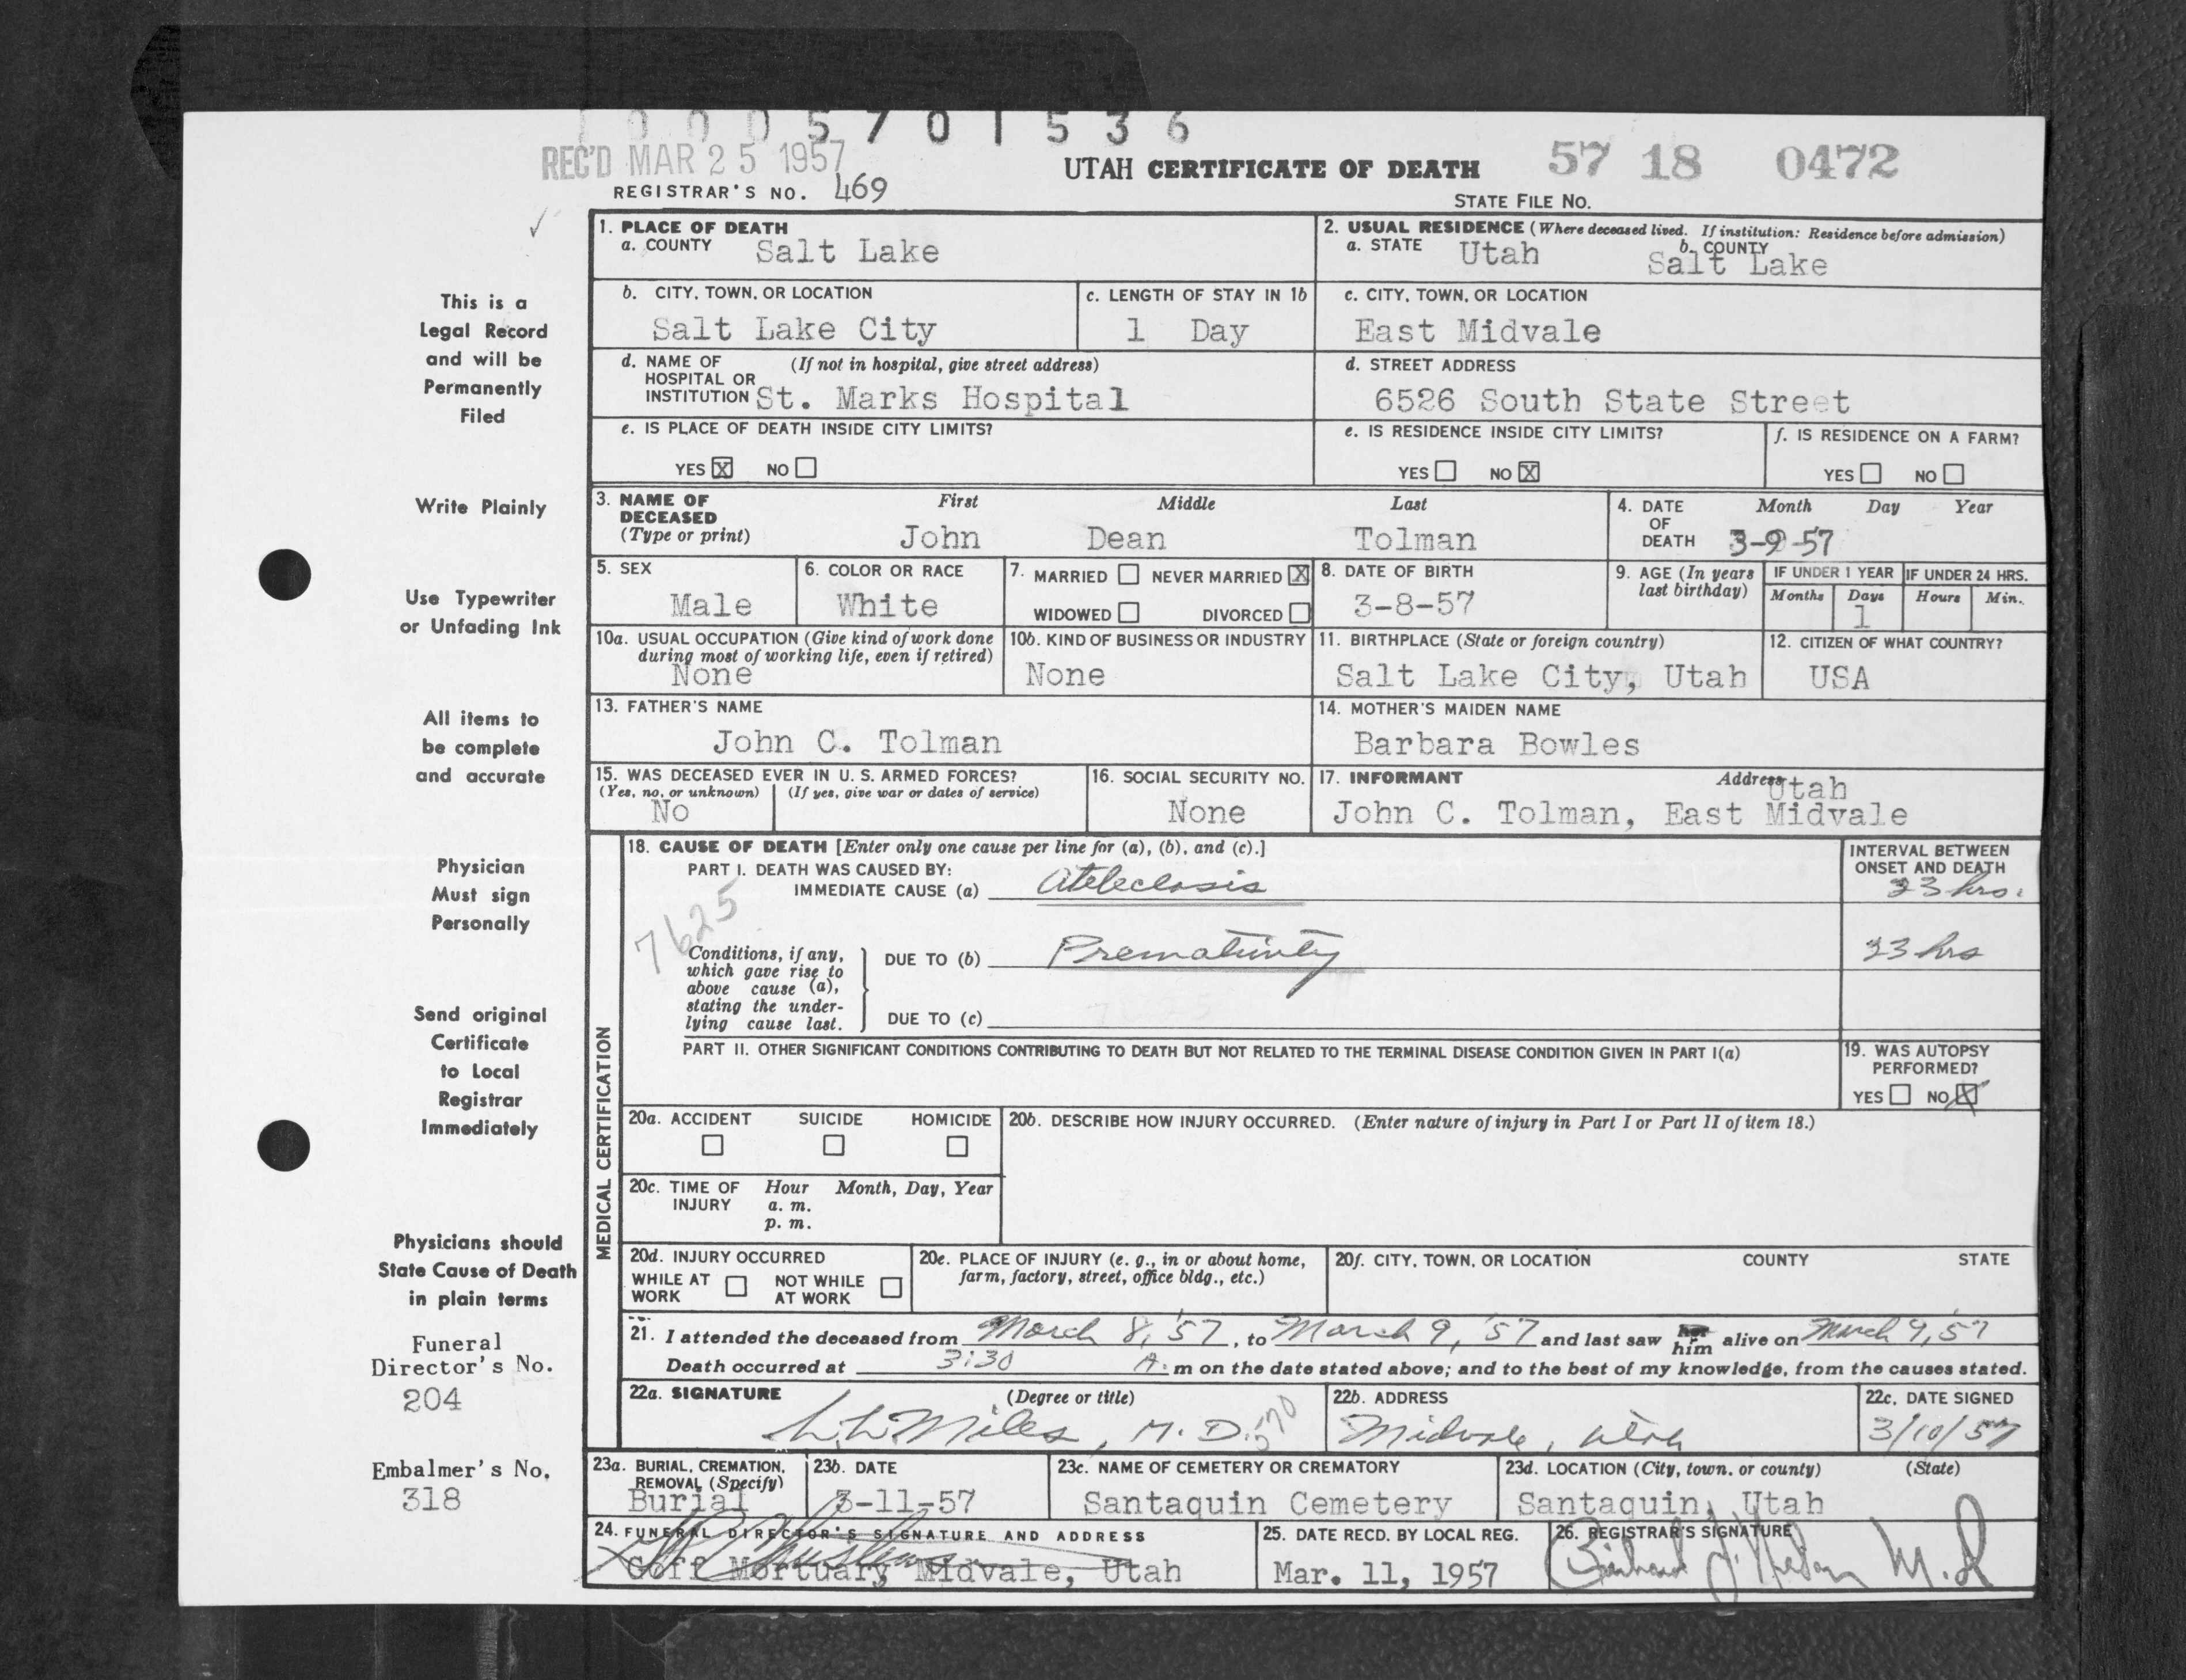 1 0 0 0 5 7 0 1 5 3 6
REC'D MAR 25 1957
UTAH CERTIFICATE OF DEATH 57 18 0472
REGISTRAR'S NO. 469
STATE FILE NO.
1. PLACE OF DEATH
a. COUNTY Salt Lake
2. USUAL RESIDENCE (Where deceased lived. If institution: Residence before admission)
a. STATE Utah b. COUNTY Salt Lake
b. CITY, TOWN, OR LOCATION
Salt Lake City
c. LENGTH OF STAY IN 1b
1 Day
c. CITY, TOWN, OR LOCATION
East Midvale
d. NAME OF (If not in hospital, give street address)
HOSPITAL OR
INSTITUTION St. Marks Hospital
d. STREET ADDRESS
6526 South State Street
e. IS PLACE OF DEATH INSIDE CITY LIMITS?
YES X NO
e. IS RESIDENCE INSIDE CITY LIMITS?
YES NO X
f. IS RESIDENCE ON A FARM?
YES NO
3. NAME OF DECEASED (Type or print)
First Middle Last
John Dean Tolman
4. DATE OF DEATH Month Day Year
3-9-57
5. SEX
Male
6. COLOR OR RACE
White
7. MARRIED NEVER MARRIED X
WIDOWED DIVORCED
8. DATE OF BIRTH
3-8-57
9. AGE (In years last birthday)
IF UNDER 1 YEAR IF UNDER 24 HRS.
Months Days Hours Min.
1
10a. USUAL OCCUPATION (Give kind of work done
during most of working life, even if retired)
None
10b. KIND OF BUSINESS OR INDUSTRY
None
11. BIRTHPLACE (State or foreign country)
Salt Lake City, Utah
12. CITIZEN OF WHAT COUNTRY?
USA
13. FATHER'S NAME
John C. Tolman
14. MOTHER'S MAIDEN NAME
Barbara Bowles
15. WAS DECEASED EVER IN U. S. ARMED FORCES?
(Yes, no, or unknown) (If yes, give war or dates of service)
No
16. SOCIAL SECURITY NO.
None
17. INFORMANT Address
Utah
John C. Tolman, East Midvale
MEDICAL CERTIFICATION
18. CAUSE OF DEATH [Enter only one cause per line for (a), (b), and (c).]
PART I. DEATH WAS CAUSED BY:
IMMEDIATE CAUSE (a) Ateleclosis
INTERVAL BETWEEN
ONSET AND DEATH
23 hrs.
7625
Conditions, if any,
which gave rise to
above cause (a),
stating the under-
lying cause last.
DUE TO (b) Prematurity 23 hrs
DUE TO (c)
PART II. OTHER SIGNIFICANT CONDITIONS CONTRIBUTING TO DEATH BUT NOT RELATED TO THE TERMINAL DISEASE CONDITION GIVEN IN PART I(a)
19. WAS AUTOPSY
PERFORMED?
YES NO X
20a. ACCIDENT SUICIDE HOMICIDE
20b. DESCRIBE HOW INJURY OCCURRED. (Enter nature of injury in Part I or Part II of item 18.)
20c. TIME OF INJURY Hour Month, Day, Year
a. m.
p. m.
20d. INJURY OCCURRED
WHILE AT WORK NOT WHILE AT WORK
20e. PLACE OF INJURY (e. g., in or about home,
farm, factory, street, office bldg., etc.)
20f. CITY, TOWN, OR LOCATION COUNTY STATE
21. I attended the deceased from March 8, '57, to March 9, '57 and last saw him alive on March 9, 57
Death occurred at 3:30 A. m on the date stated above; and to the best of my knowledge, from the causes stated.
22a. SIGNATURE (Degree or title)
L. L. Miles, M. D. 570
22b. ADDRESS
Midvale, Utah
22c. DATE SIGNED
3/10/57
23a. BURIAL, CREMATION,
REMOVAL (Specify)
Burial
23b. DATE
3-11-57
23c. NAME OF CEMETERY OR CREMATORY
Santaquin Cemetery
23d. LOCATION (City, town. or county) (State)
Santaquin, Utah
24. FUNERAL DIRECTOR'S SIGNATURE AND ADDRESS
Goff Mortuary, Midvale, Utah
25. DATE RECD. BY LOCAL REG.
Mar. 11, 1957
26. REGISTRAR'S SIGNATURE
M.D
This is a
Legal Record
and will be
Permanently
Filed
Write Plainly
Use Typewriter
or Unfading Ink
All items to
be complete
and accurate
Physician
Must sign
Personally
Send original
Certificate
to Local
Registrar
Immediately
Physicians should
State Cause of Death
in plain terms
Funeral
Director's No.
204
Embalmer's No.
318